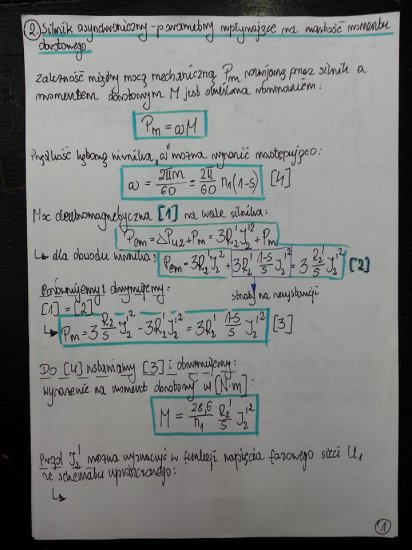 ② Silnik asynchroniczny - parametry wpływające na wartość momentu
obrotowego.
Zależność między mocą mechaniczną Pm rozwijaną przez silnik a
momentem obrotowym M jest określona wzorem:
Pm = ωM
Prędkość kątową wirnika "ω" można wyrazić następująco:
ω = 2πn/60 = 2π/60 n₁(1-s) [4]
Moc elektromagnetyczna [1] na wale silnika:
Pem = ΔPu2 + Pm = 3R₂'I₂'² + Pm
↳ dla obwodu wirnika: Pem = 3R₂'I₂'² + 3R₂' (1-s)/s I₂'² = 3 R₂'/s I₂'² [2]
straty na rezystancji
Porównujemy i otrzymujemy:
[1] = [2]
↳ Pm = 3 R₂'/s I₂'² - 3R₂'I₂'² = 3R₂' (1-s)/s I₂'² [3]
Do [4] wstawiamy [3] i otrzymujemy:
wyrażenie na moment obrotowy w [N·m]:
M = 28,6/n₁ R₂'/s I₂'²
Prąd I₂' można wyznaczyć w funkcji napięcia fazowego sieci U₁
ze schematu uproszczonego:
↳
①